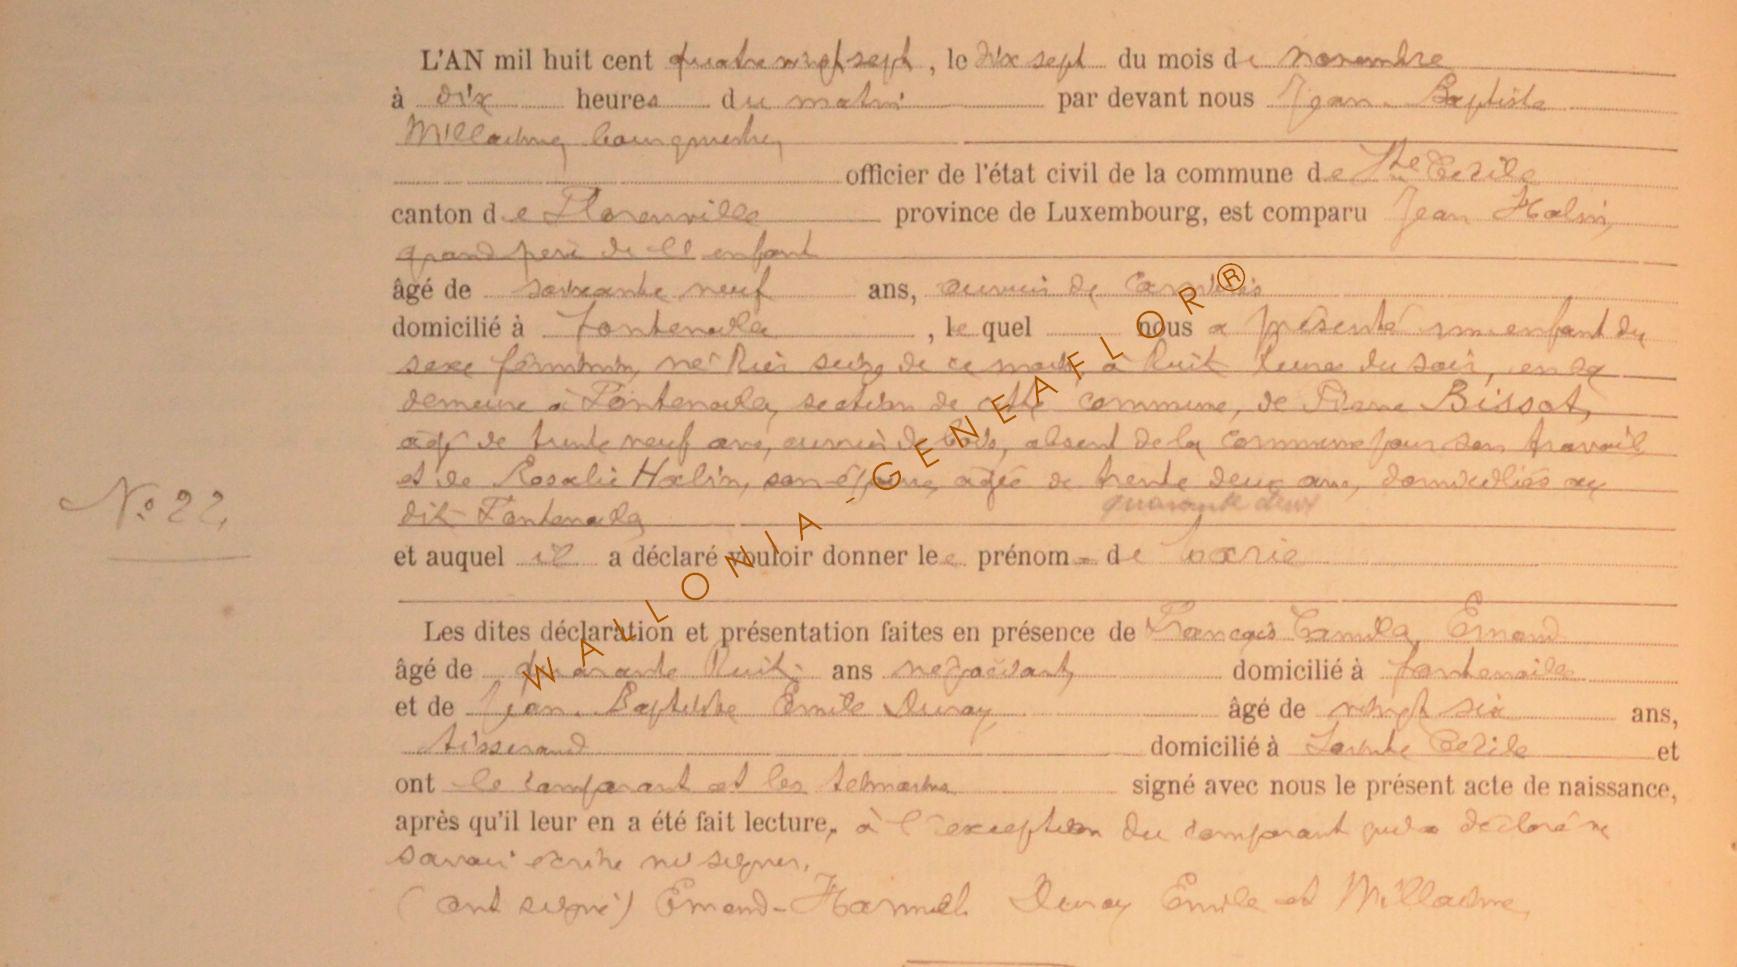 L'AN mil huit cent quatre vingt sept, le dix sept du mois de novembre
à dix heures du matin par devant nous Jean-Baptiste
bourgmestre,
officier de l'état civil de la commune de Ste Cécile
canton de Florenville province de Luxembourg, est comparu Jean Halin,
grand père de l'enfant
âgé de soixante neuf ans, ouvrier de carrières
domicilié à Fontenoille, le quel nous a présenté un enfant du
sexe féminin, né hier seize de ce mois à huit heures du soir, en sa
demeure à Fontenoille, section de cette commune, de Pierre Bissot,
âgé de trente neuf ans, ouvrier de bois, absent de la commune pour son travail
et de Rosalie Halin, son épouse, âgée de trente deux ans, domiciliés au
quarante deux
dit Fontenoille
N° 22.
et auquel il a déclaré vouloir donner le prénom de Marie
Les dites déclaration et présentation faites en présence de François Camille Emond
âgé de quarante huit ans négociant, domicilié à Fontenoille
et de Jean-Baptiste Emile Duroy âgé de vingt six ans,
tisserand domicilié à Sainte Cécile et
ont le comparant et les témoins signé avec nous le présent acte de naissance,
après qu'il leur en a été fait lecture, à l'exception du comparant qui a déclaré ne
savoir écrire ni signer.
(ont signé) Emond- Duroy Emile et
WALLONIA - GENEAFLOR®